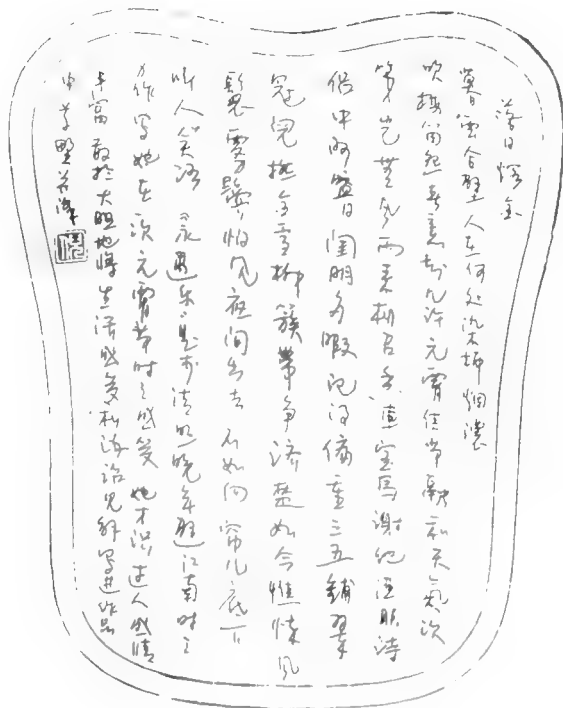 落日熔金
暮雲合璧人在何处染柳烟濃
吹梅笛怨春意知几许元宵佳节融和天氣次
第岂无风雨来相召香車宝马谢他酒朋诗
侣中州盛日闺門多暇记得偏重三五鋪翠
冠児撚金雪柳簇帶争济楚如今憔悴风
鬟雾鬢怕见夜间出去不如向帘儿底下
听人笑语 永遇乐是李清照晚年避江南时之
力作写她在次元宵节时之感受 她才识过人感情
丰富敢於大胆地将生活感受和政治见解写进作品
中